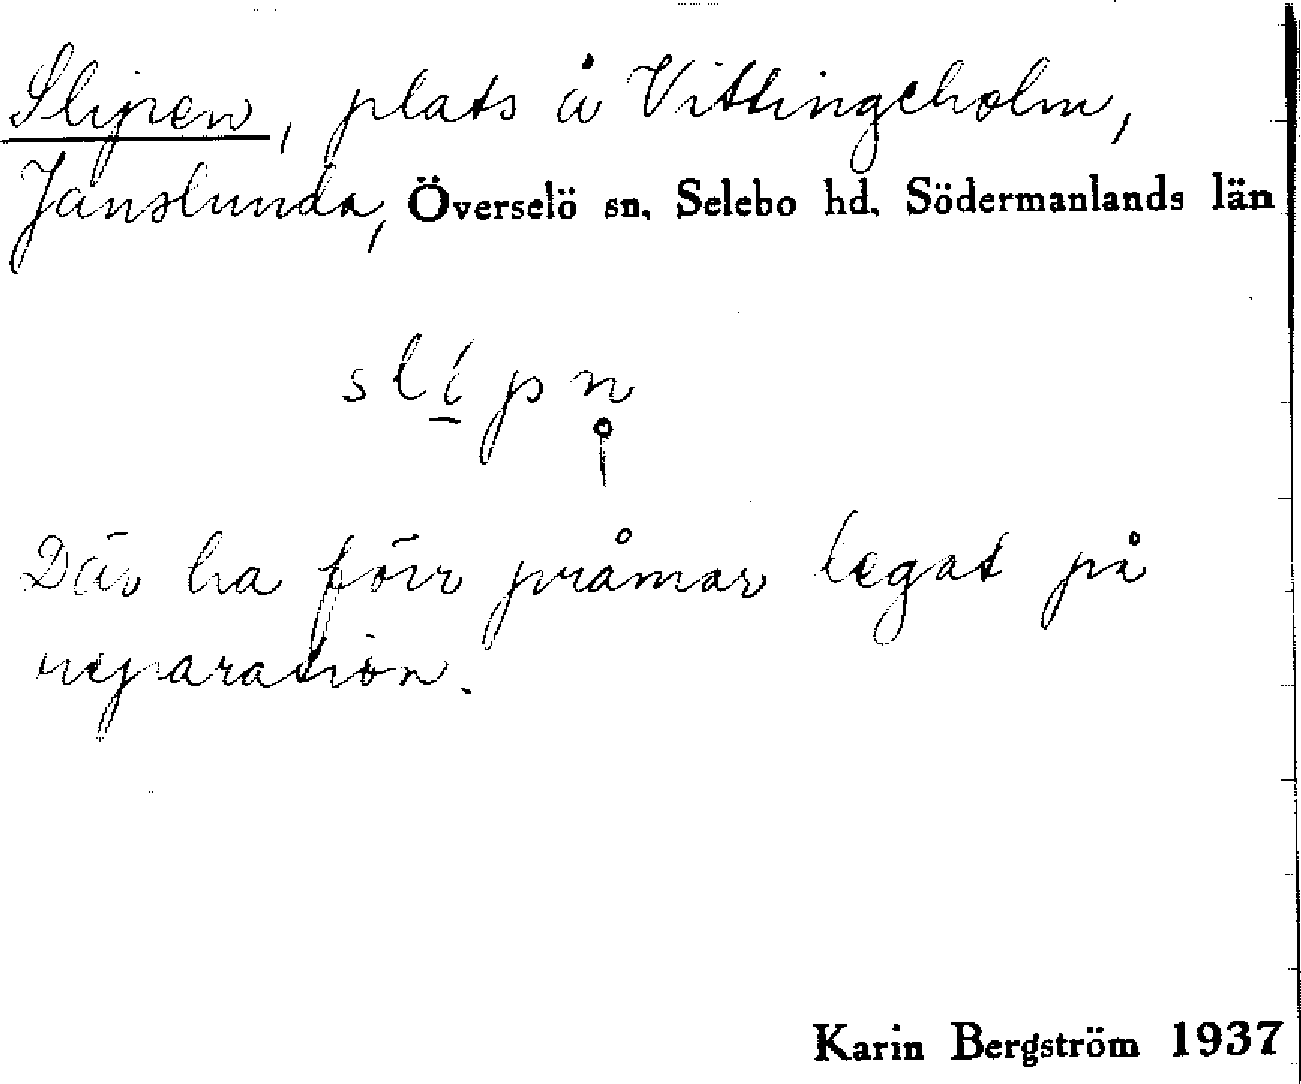 Slipen, plats å Vittingeholm,
Janslunda, Överselö sn, Selebo hd, Södermanlands län
slípn̥
Där ha förr pråmar legat på
reparation.
Karin Bergström 1937